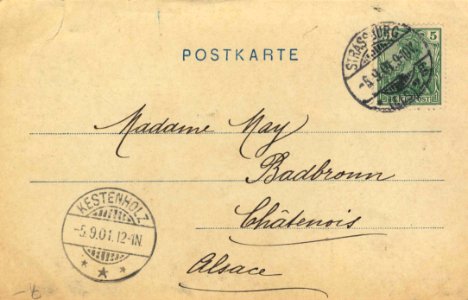 POSTKARTE
5
STRASSBURG
Madame May
Badbronn
Châtenois
Alsace
KESTENHOLZ
-5.9.01.12-1N.